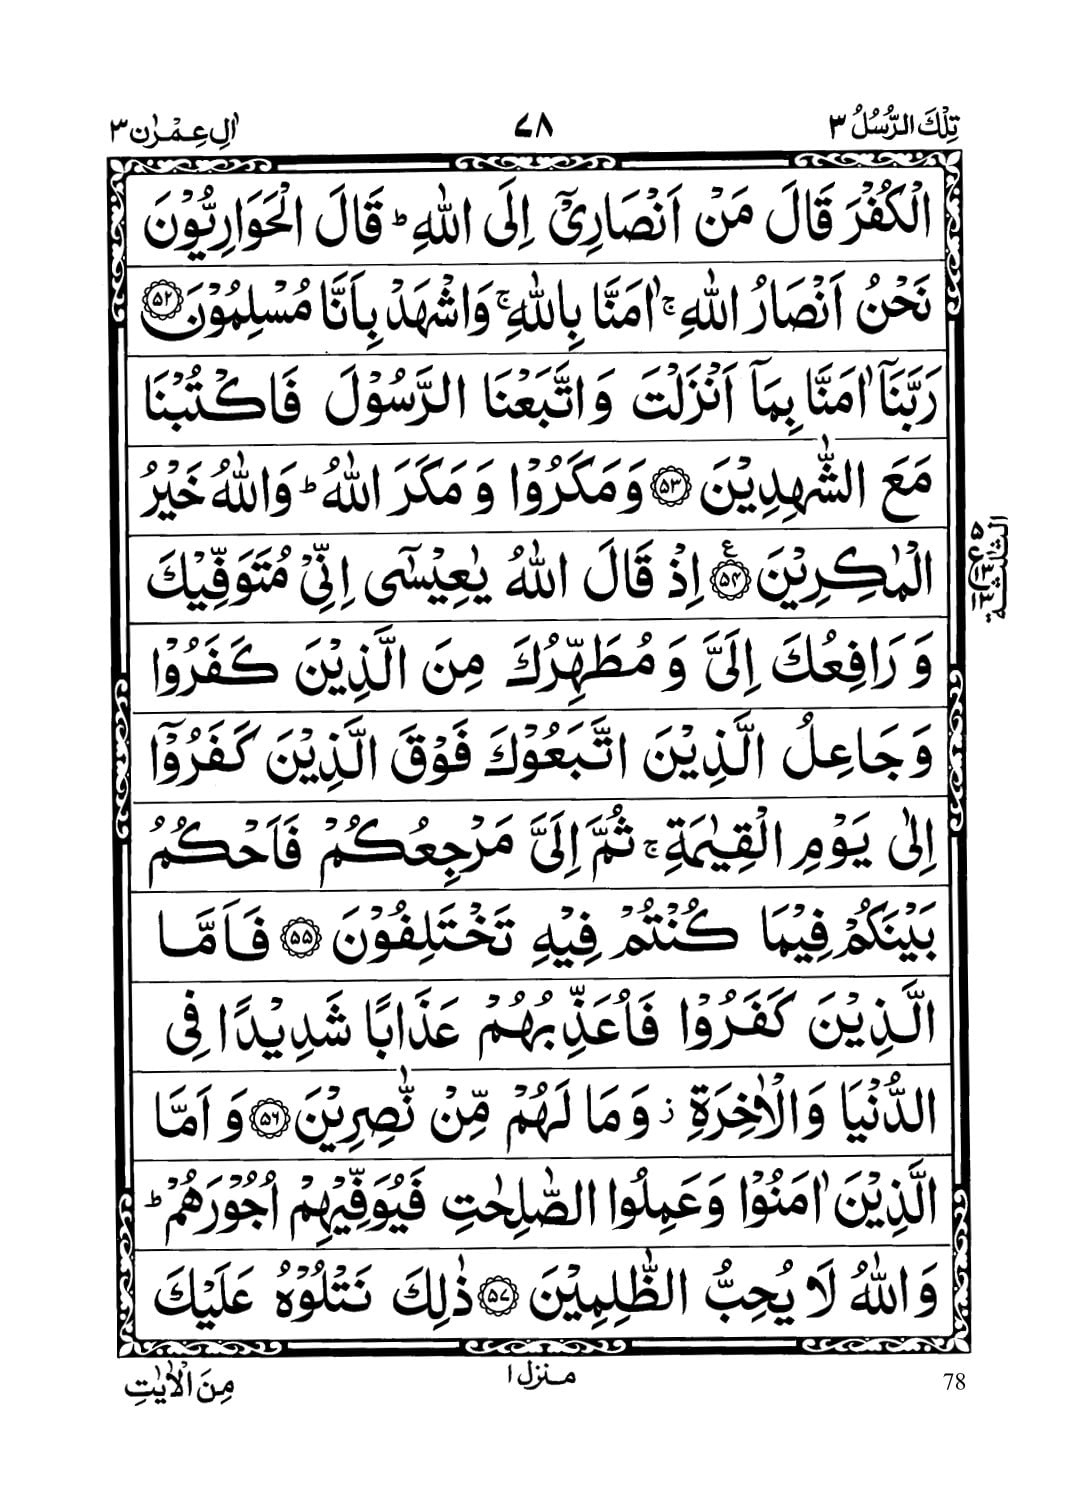 تِلْكَ الرُّسُلُ ٣
٧٨
اٰلِ عِمْرٰن ٣
الْكُفْرَ قَالَ مَنْ اَنْصَارِیْۤ اِلَی اللّٰهِ ؕ قَالَ الْحَوَارِیُّوْنَ
نَحْنُ اَنْصَارُ اللّٰهِ ۚ اٰمَنَّا بِاللّٰهِ ۚ وَاشْهَدْ بِاَنَّا مُسْلِمُوْنَ ۵۲
رَبَّنَاۤ اٰمَنَّا بِمَاۤ اَنْزَلْتَ وَاتَّبَعْنَا الرَّسُوْلَ فَاكْتُبْنَا
مَعَ الشّٰهِدِیْنَ ۵۳ وَمَكَرُوْا وَ مَكَرَ اللّٰهُ ؕ وَاللّٰهُ خَیْرُ
الْمٰكِرِیْنَ ۵۴ ع اِذْ قَالَ اللّٰهُ یٰعِیْسٰۤی اِنِّیْ مُتَوَفِّیْكَ
وَ رَافِعُكَ اِلَیَّ وَ مُطَهِّرُكَ مِنَ الَّذِیْنَ كَفَرُوْا
وَ جَاعِلُ الَّذِیْنَ اتَّبَعُوْكَ فَوْقَ الَّذِیْنَ كَفَرُوْۤا
اِلٰی یَوْمِ الْقِیٰمَةِ ۚ ثُمَّ اِلَیَّ مَرْجِعُكُمْ فَاَحْكُمُ
بَیْنَكُمْ فِیْمَا كُنْتُمْ فِیْهِ تَخْتَلِفُوْنَ ۵۵ فَاَمَّا
الَّذِیْنَ كَفَرُوْا فَاُعَذِّبُهُمْ عَذَابًا شَدِیْدًا فِی
الدُّنْیَا وَالْاٰخِرَةِ ز وَ مَا لَهُمْ مِّنْ نّٰصِرِیْنَ ۵۶ وَ اَمَّا
الَّذِیْنَ اٰمَنُوْا وَعَمِلُوا الصّٰلِحٰتِ فَیُوَفِّیْهِمْ اُجُوْرَهُمْ ؕ
وَاللّٰهُ لَا یُحِبُّ الظّٰلِمِیْنَ ۵۷ ذٰلِكَ نَتْلُوْهُ عَلَیْكَ
الثلثة
۵
ع
۱۳
۱۳
مِنَ الْاٰیٰتِ
منزل ۱
78